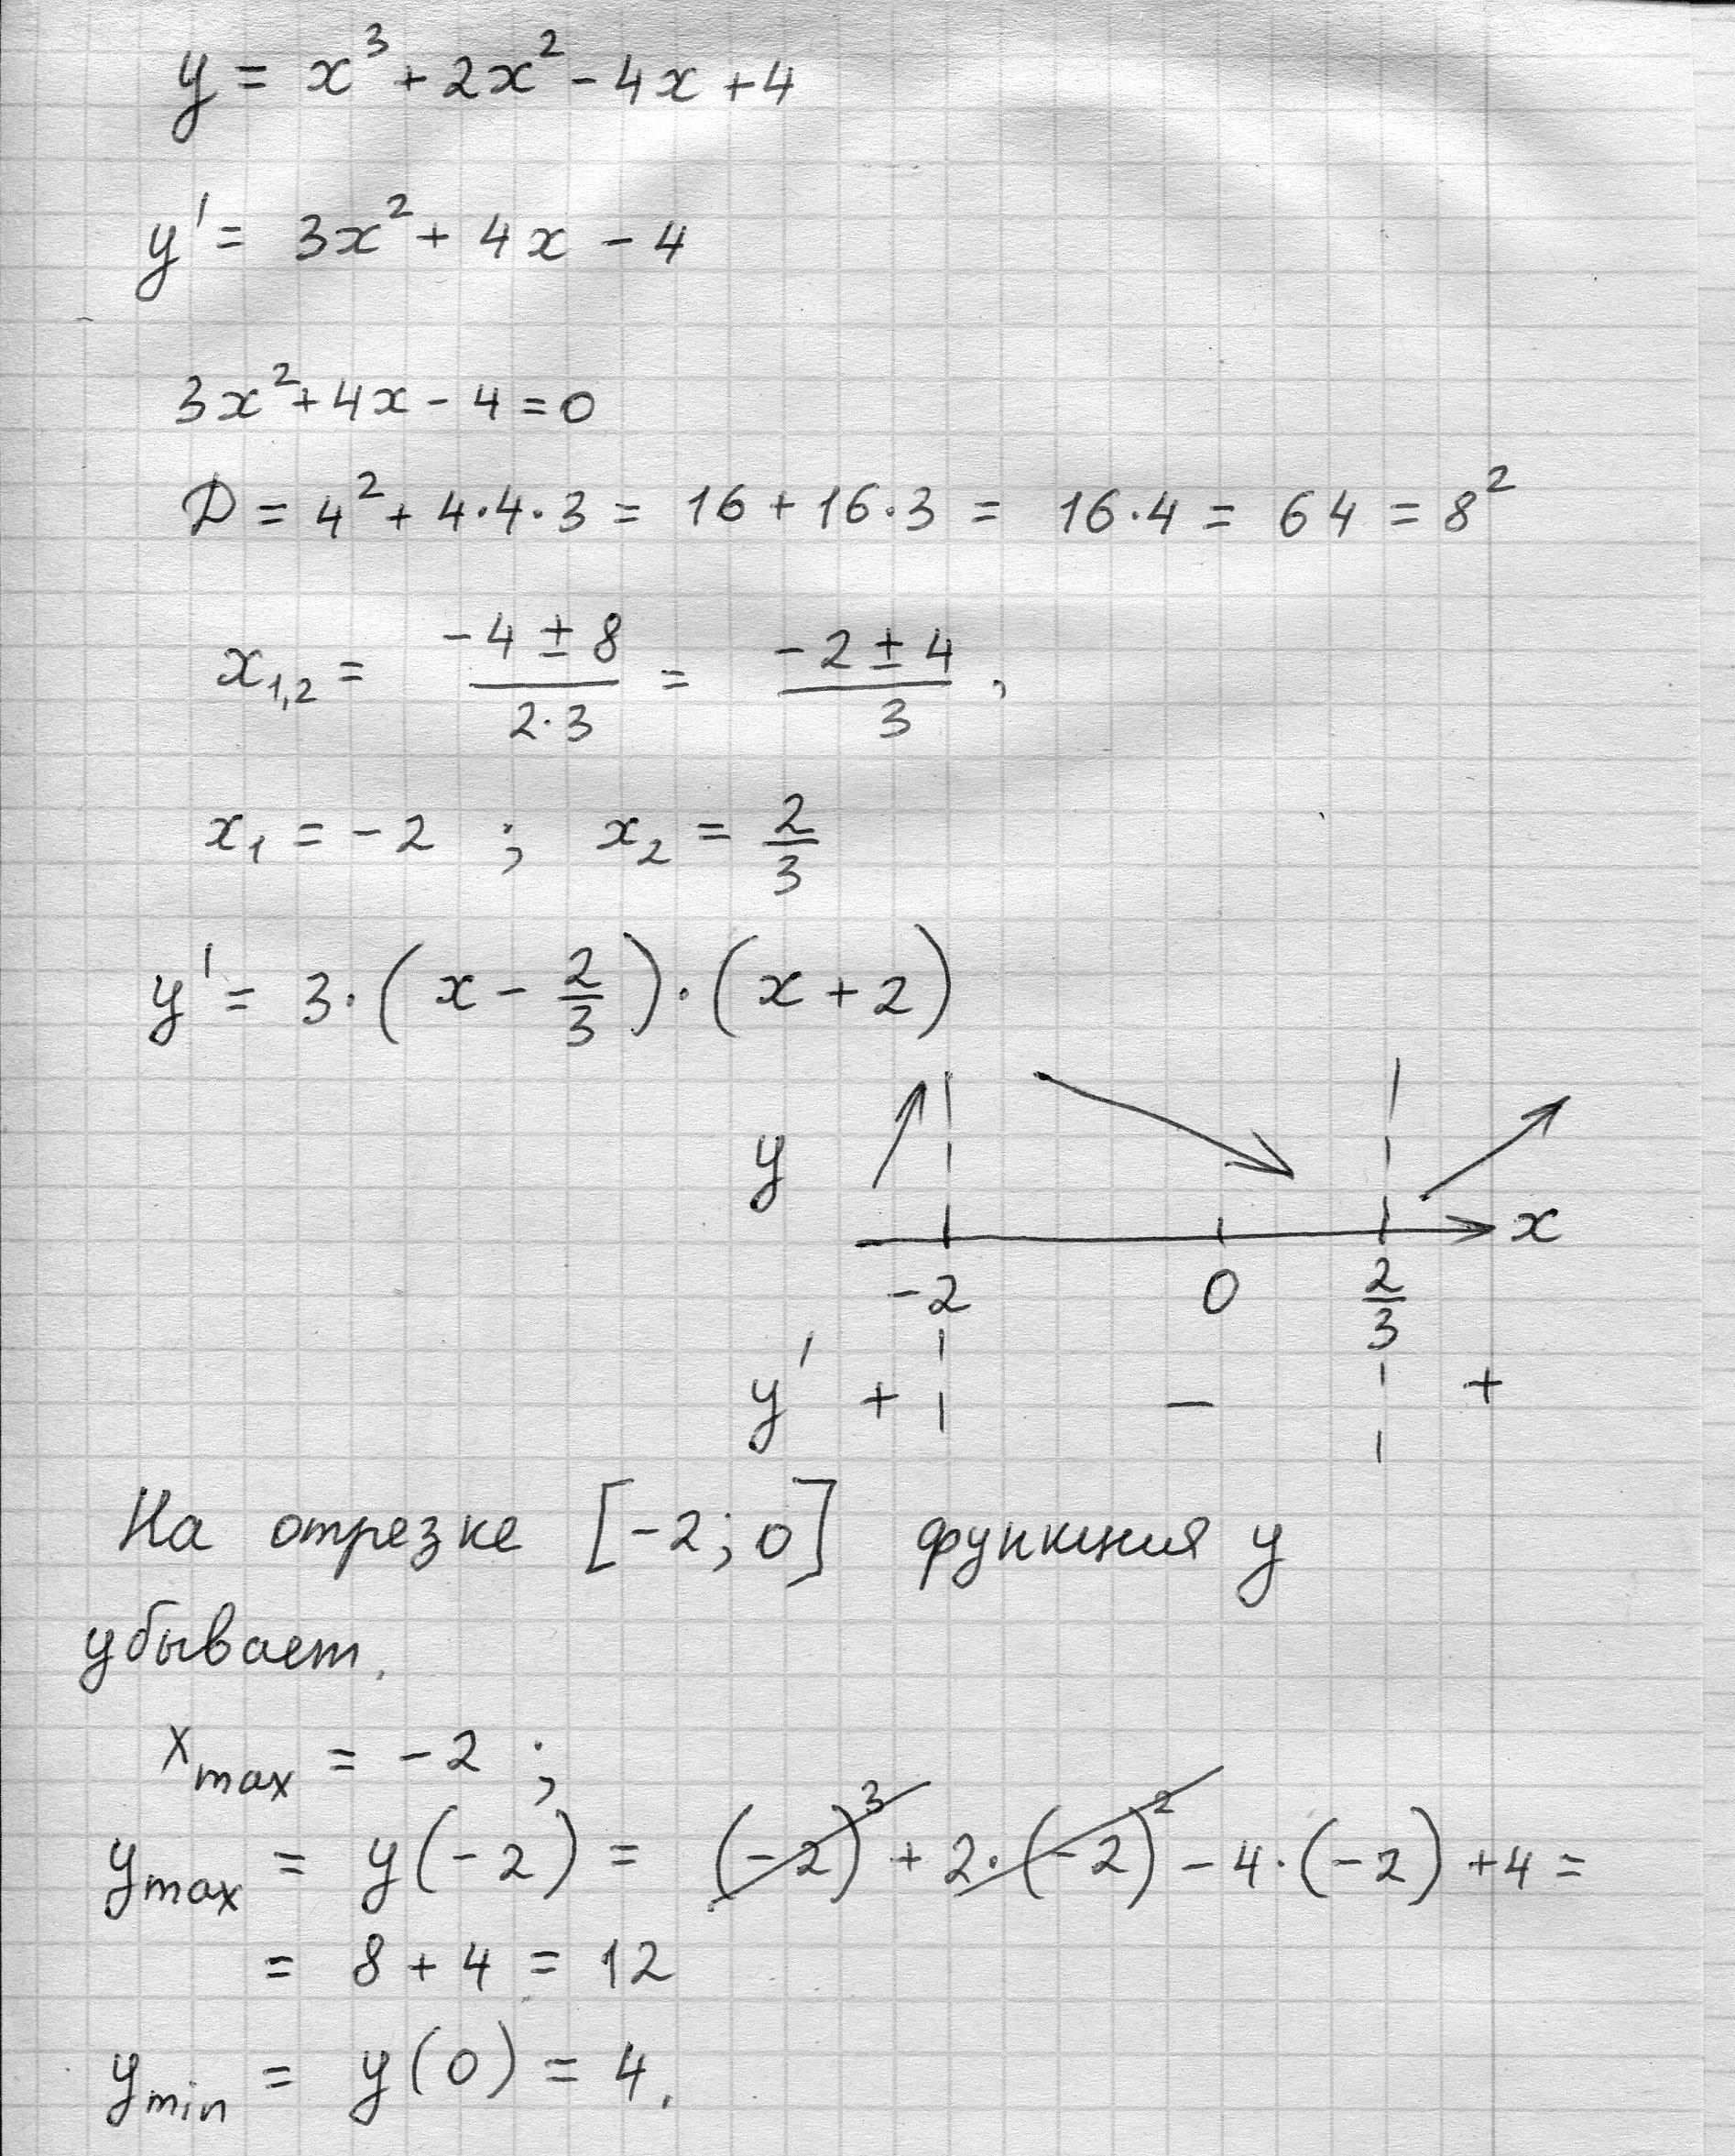 y = x³ + 2x² - 4x + 4
y' = 3x² + 4x - 4
3x² + 4x - 4 = 0
D = 4² + 4·4·3 = 16 + 16·3 = 16·4 = 64 = 8²
x₁,₂ = (-4 ± 8)/(2·3) = (-2 ± 4)/3,
x₁ = -2 ; x₂ = 2/3
y' = 3·(x - 2/3)·(x + 2)
y
x
-2 0 2/3
y' + - +
На отрезке [-2; 0] функция y
убывает.
x max = -2 ;
y max = y(-2) = (-2)³ + 2·(-2)² - 4·(-2) + 4 =
= 8 + 4 = 12
y min = y(0) = 4.